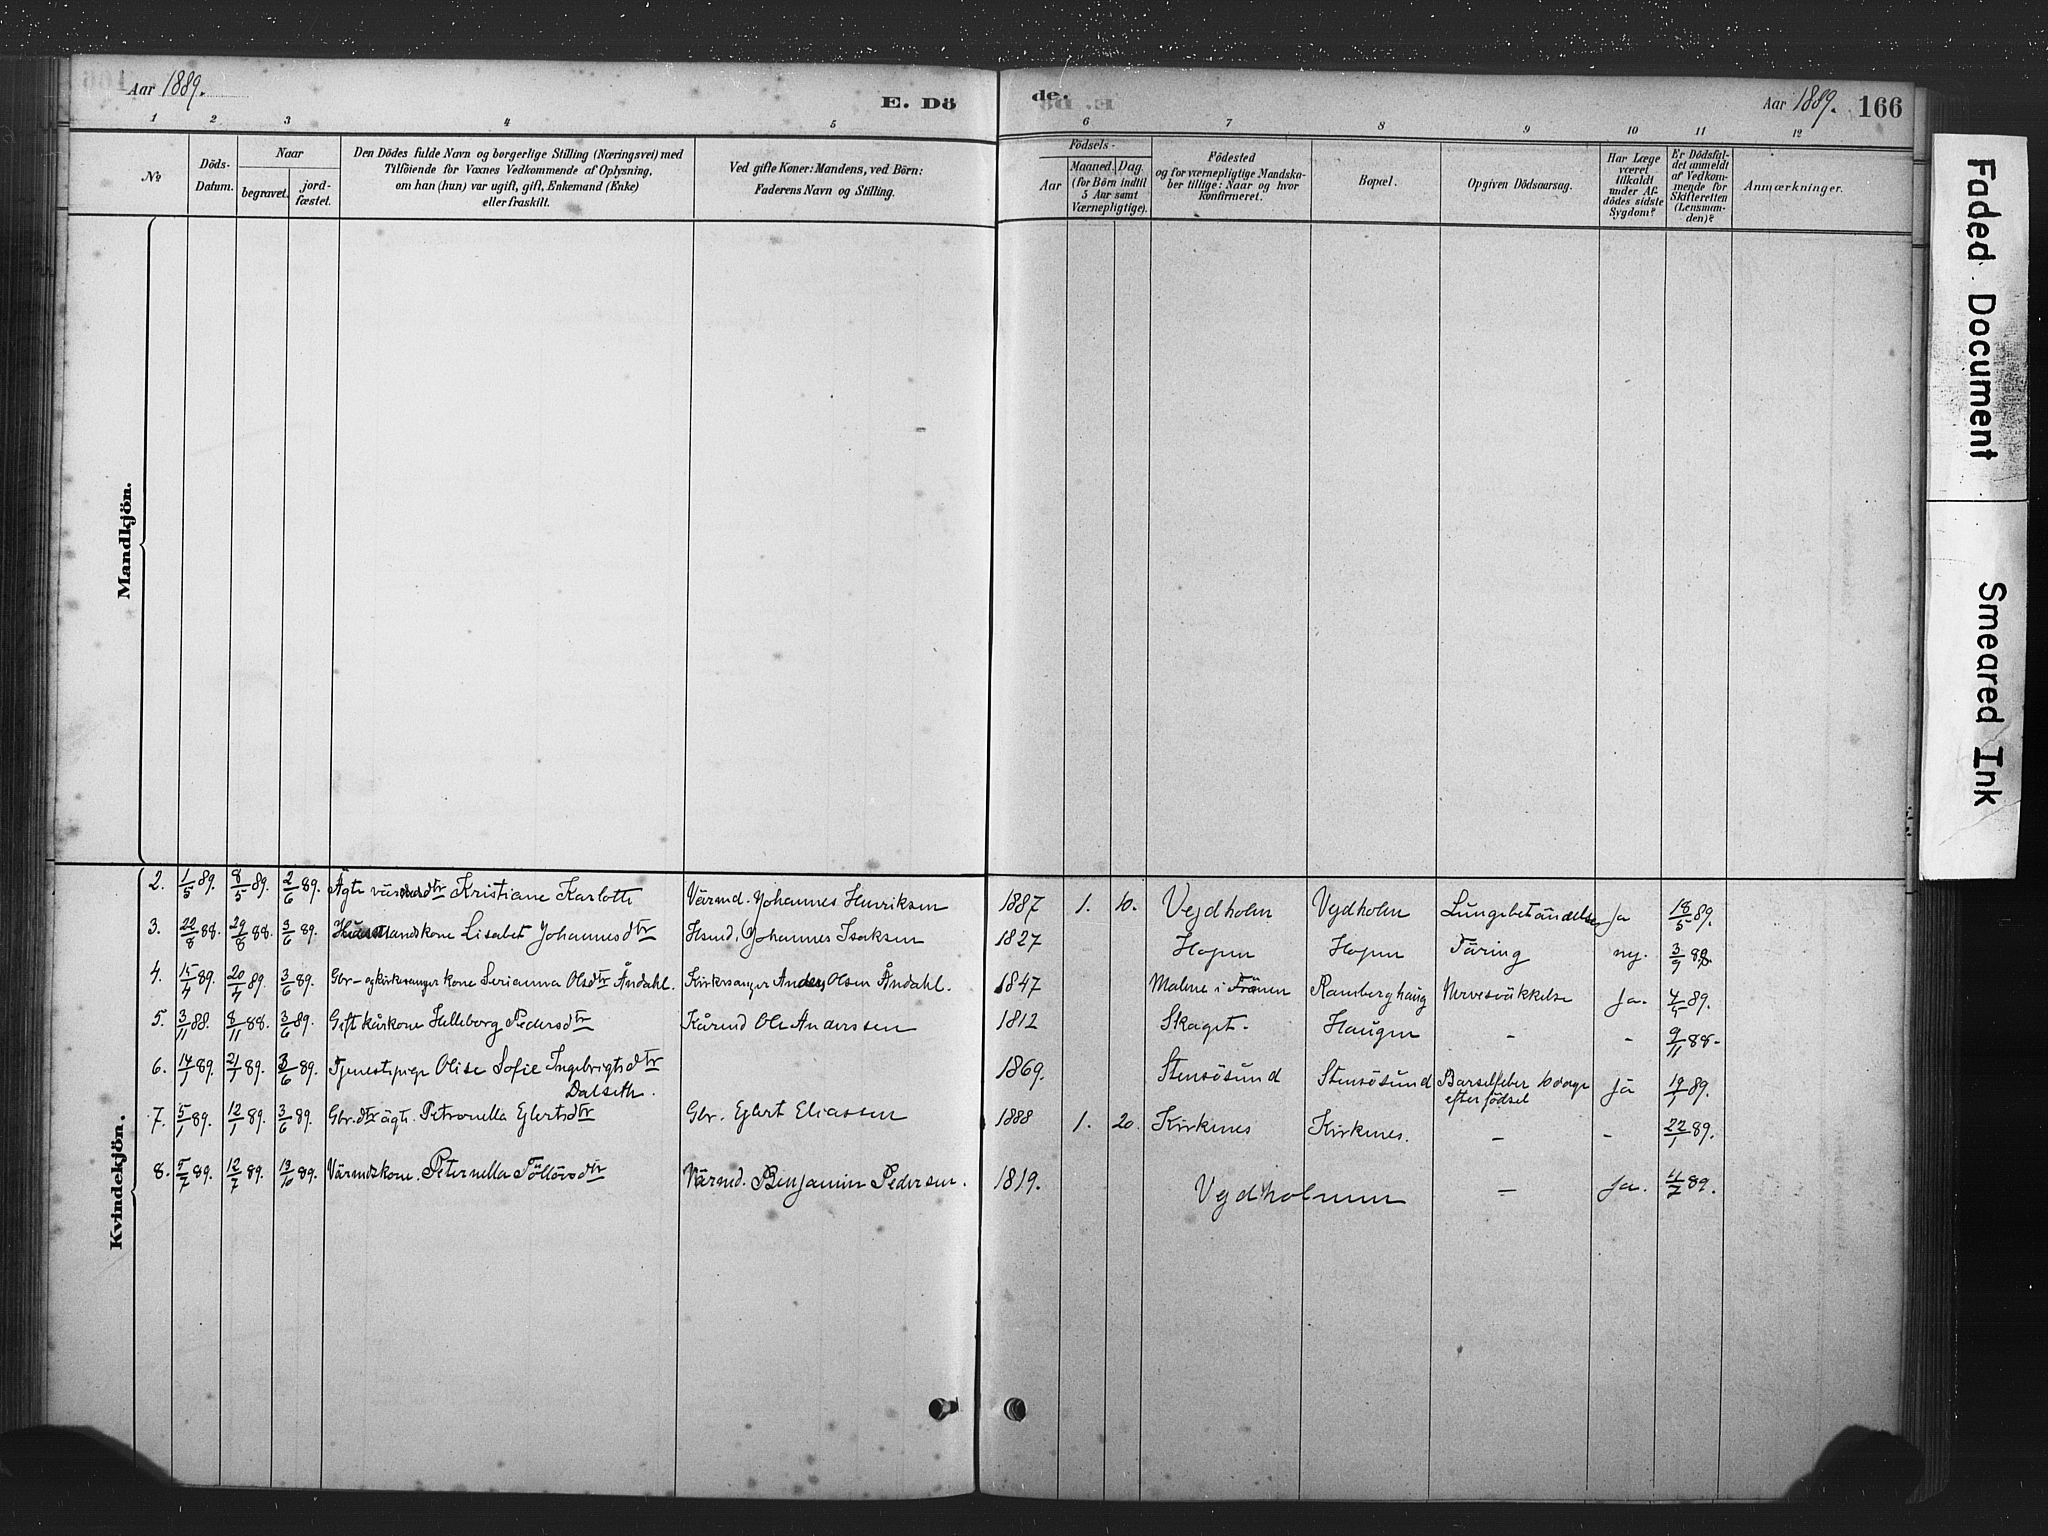 Aar 1889.
E. Dö
de.
Aar 1889. 166
1 2 3 4 5 6 7 8 9 10 11 12
No
Döds-
Datum.
Naar
begravet.
jord-
fæstet.
Den Dödes fulde Navn og borgerlige Stilling (Næringsvei) med
Tilföiende for Voxnes Vedkommende af Oplysning,
om han (hun) var ugift, gift, Enkemand (Enke)
eller fraskilt.
Ved gifte Koner: Mandens, ved Börn:
Faderens Navn og Stilling.
Födsels-
Aar
Maaned. Dag.
(for Börn indtil
5 Aar samt
Værnepligtige).
Födested
og for værnepligtige Mandska-
ber tillige: Naar og hvor
konfirmeret.
Bopæl.
Opgiven Dödsaarsag.
Har Læge
været
tilkaldt
under Af-
dödes sidste
Sygdom?
Er Dödsfal-
det anmeldt
af Vedkom-
mende for
Skifteretten
(Lensman-
den)?
Anmærkninger.
Mandkjön.
Kvindekjön.
2. 1/5 89. 8/5 89. 2/6 89. Ägte dtr Kristiane Karlotte Värmd. Johannes Henriksen 1887 1. 10. Vejdholm Vejdholm Lungebetändelse Ja 18/5 89.
3. 22/8 88. 29/8 88. 3/6 89. Husmandskone Lisabet Johannesdtr Hsmd. Johannes Isaksen 1827 Hopen Hopen Täring nej. 3/9 88.
4. 15/4 89. 20/4 89. 3/6 89. Gbr- og kirkesanger kone Serianna Olsdtr Åndahl Kirkesanger Anders Olsen Åndahl. 1847 Malme i Frånen Ramberghaug Nervesväkkelse Ja. 4/5 89.
5. 3/11 88. 8/11 88. 3/6 89. Gift kårkone Helleborg Pedersdtr Kårmd Ole Anderssen 1812 Skaget. Haugen - - 9/11 88-
6. 14/1 89. 21/1 89. 3/6 89. Tjenestepige Olise Sofie Ingebrigtsdtr 1869. Stensösund Stensösund Barselfeber 10 dage Ja 19/1 89.
Dalseth.
efter födsel
7. 5/1 89. 12/1 89. 3/6 89. Gbr. dtr ägte. Petronella Ejlertsdtr Gbr. Ejlert Eliassen 1888 1. 20. Kirknes Kirknes. - - 22/1 89.
8. 5/7 89. 12/7 89. 13/10 89. Värmdskone. Peternella Tölläsvsdtr Värmd. Benjamin Pedersen. 1819. Vejdholmen - Ja. 4/7 89.
Faded Document
Smeared Ink